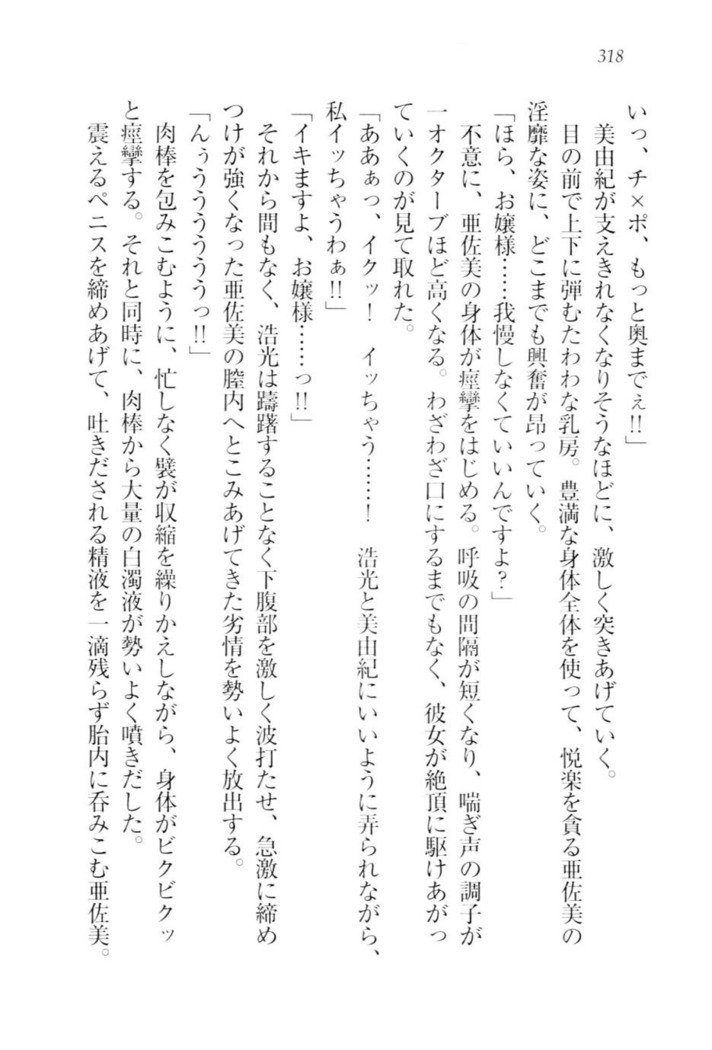 318
いっ、チ×ポ、もっと奥までぇ!!」
美由紀が支えきれなくなりそうなほどに、激しく突きあげていく。
目の前で上下に弾むたわわな乳房。豊満な身体全体を使って、悦楽を貪る亜佐美の
淫靡な姿に、どこまでも興奮が昂っていく。
「ほら、お嬢様……我慢しなくていいんですよ?」
不意に、亜佐美の身体が痙攣をはじめる。呼吸の間隔が短くなり、喘ぎ声の調子が
一オクターブほど高くなる。わざわざ口にするまでもなく、彼女が絶頂に駆けあがっ
ていくのが見て取れた。
「ああぁっ、イクッ! イッちゃう……! 浩光と美由紀にいいように弄られながら、
私イッちゃうわぁ!!」
「イキますよ、お嬢様……っ!!」
それから間もなく、浩光は躊躇することなく下腹部を激しく波打たせ、急激に締め
つけが強くなった亜佐美の膣内へとこみあげてきた劣情を勢いよく放出する。
「んぅうううううっ!!」
肉棒を包みこむように、忙しなく襞が収縮を繰りかえしながら、身体がビクビクッ
と痙攣する。それと同時に、肉棒から大量の白濁液が勢いよく噴きだした。
震えるペニスを締めあげて、吐きだされる精液を一滴残らず胎内に呑みこむ亜佐美。